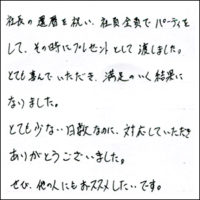 社長の還暦を祝い、社員全員でパーティを
して、その時にプレゼントとして渡しました。
とても喜んでいただき、満足のいく結果に
なりました。
とても少ない日数なのに、対応していただき
ありがとうございました。
ぜひ、他の人にもおススメしたいです。